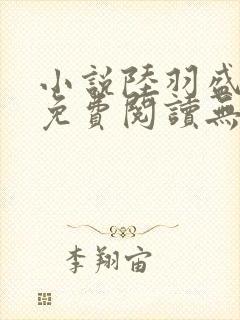 小說陸羽盛
免費閱讀無
李翔宙